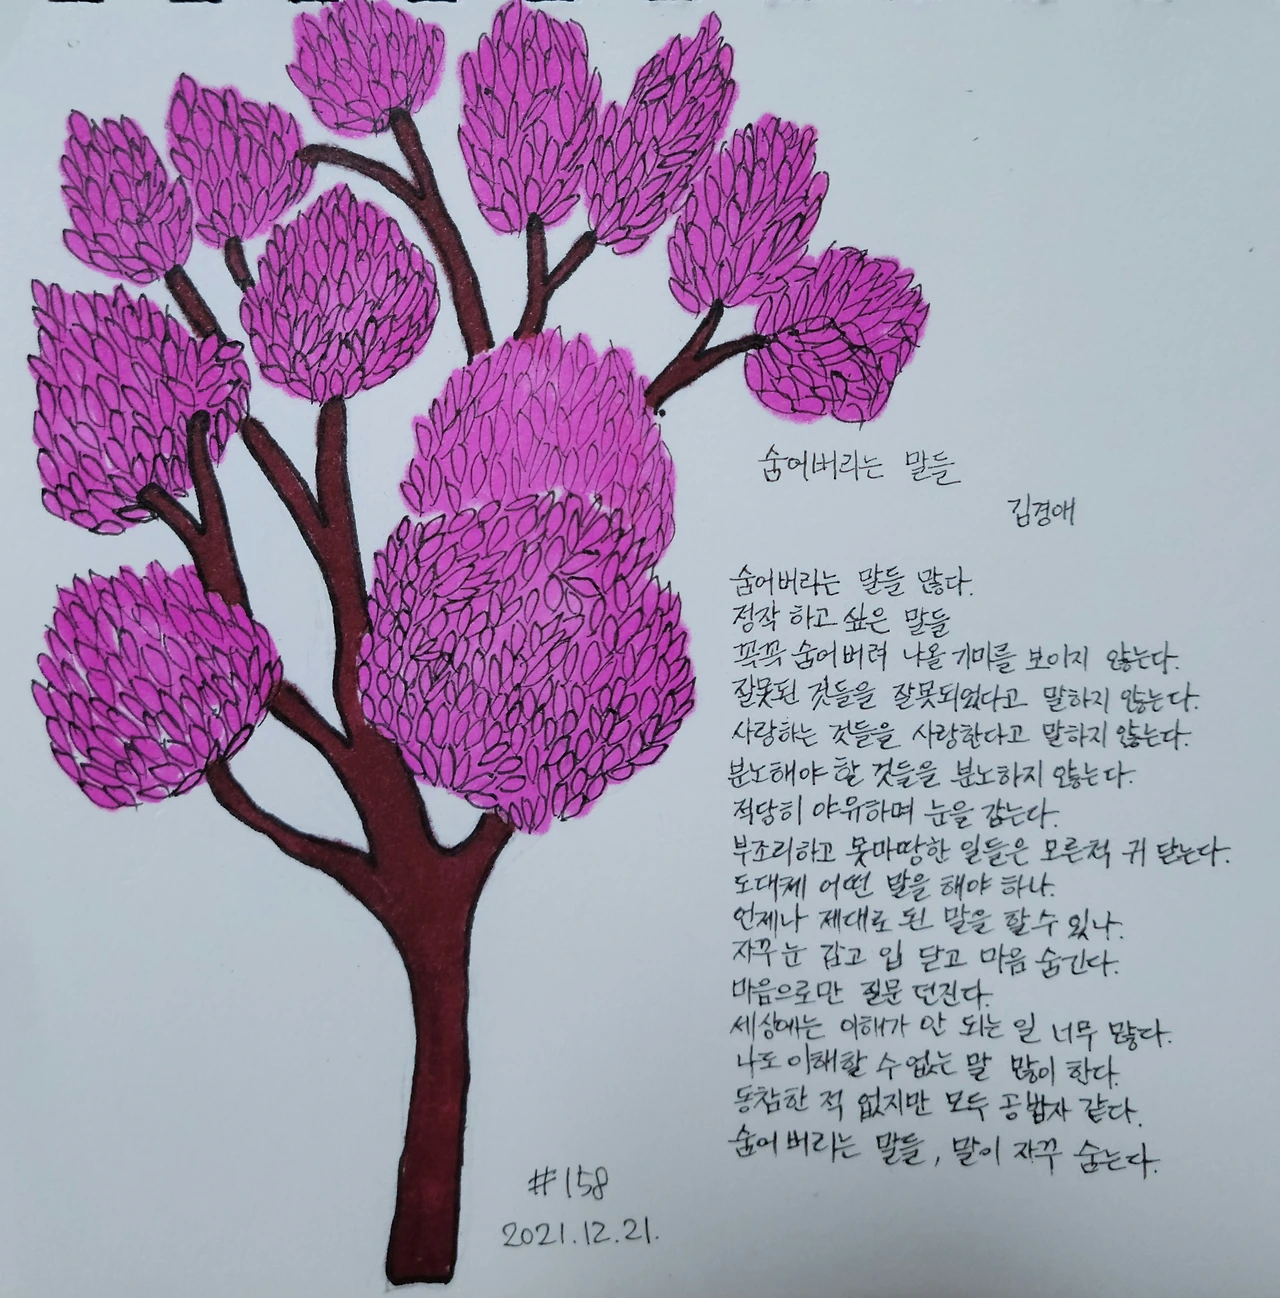 숨어버리는 말들
김경애
숨어버리는 말들 많다.
정작 하고 싶은 말들
꼭꼭 숨어버려 나올 기미를 보이지 않는다.
잘못된 것들을 잘못되었다고 말하지 않는다.
사랑하는 것들을 사랑한다고 말하지 않는다.
분노해야 할 것들을 분노하지 않는다.
적당히 야유하며 눈을 감는다.
부조리하고 못마땅한 일들은 모른척 귀 닫는다.
도대체 어떤 말을 해야 하나.
언제나 제대로 된 말을 할 수 있나.
자꾸 눈 감고 입 닫고 마음 숨긴다.
마음으로만 질문 던진다.
세상에는 이해가 안 되는 일 너무 많다.
나도 이해할 수 없는 말 많이 한다.
동참한 적 없지만 모두 공범자 같다.
숨어 버리는 말들, 말이 자꾸 숨는다.
#158
2021.12.21.